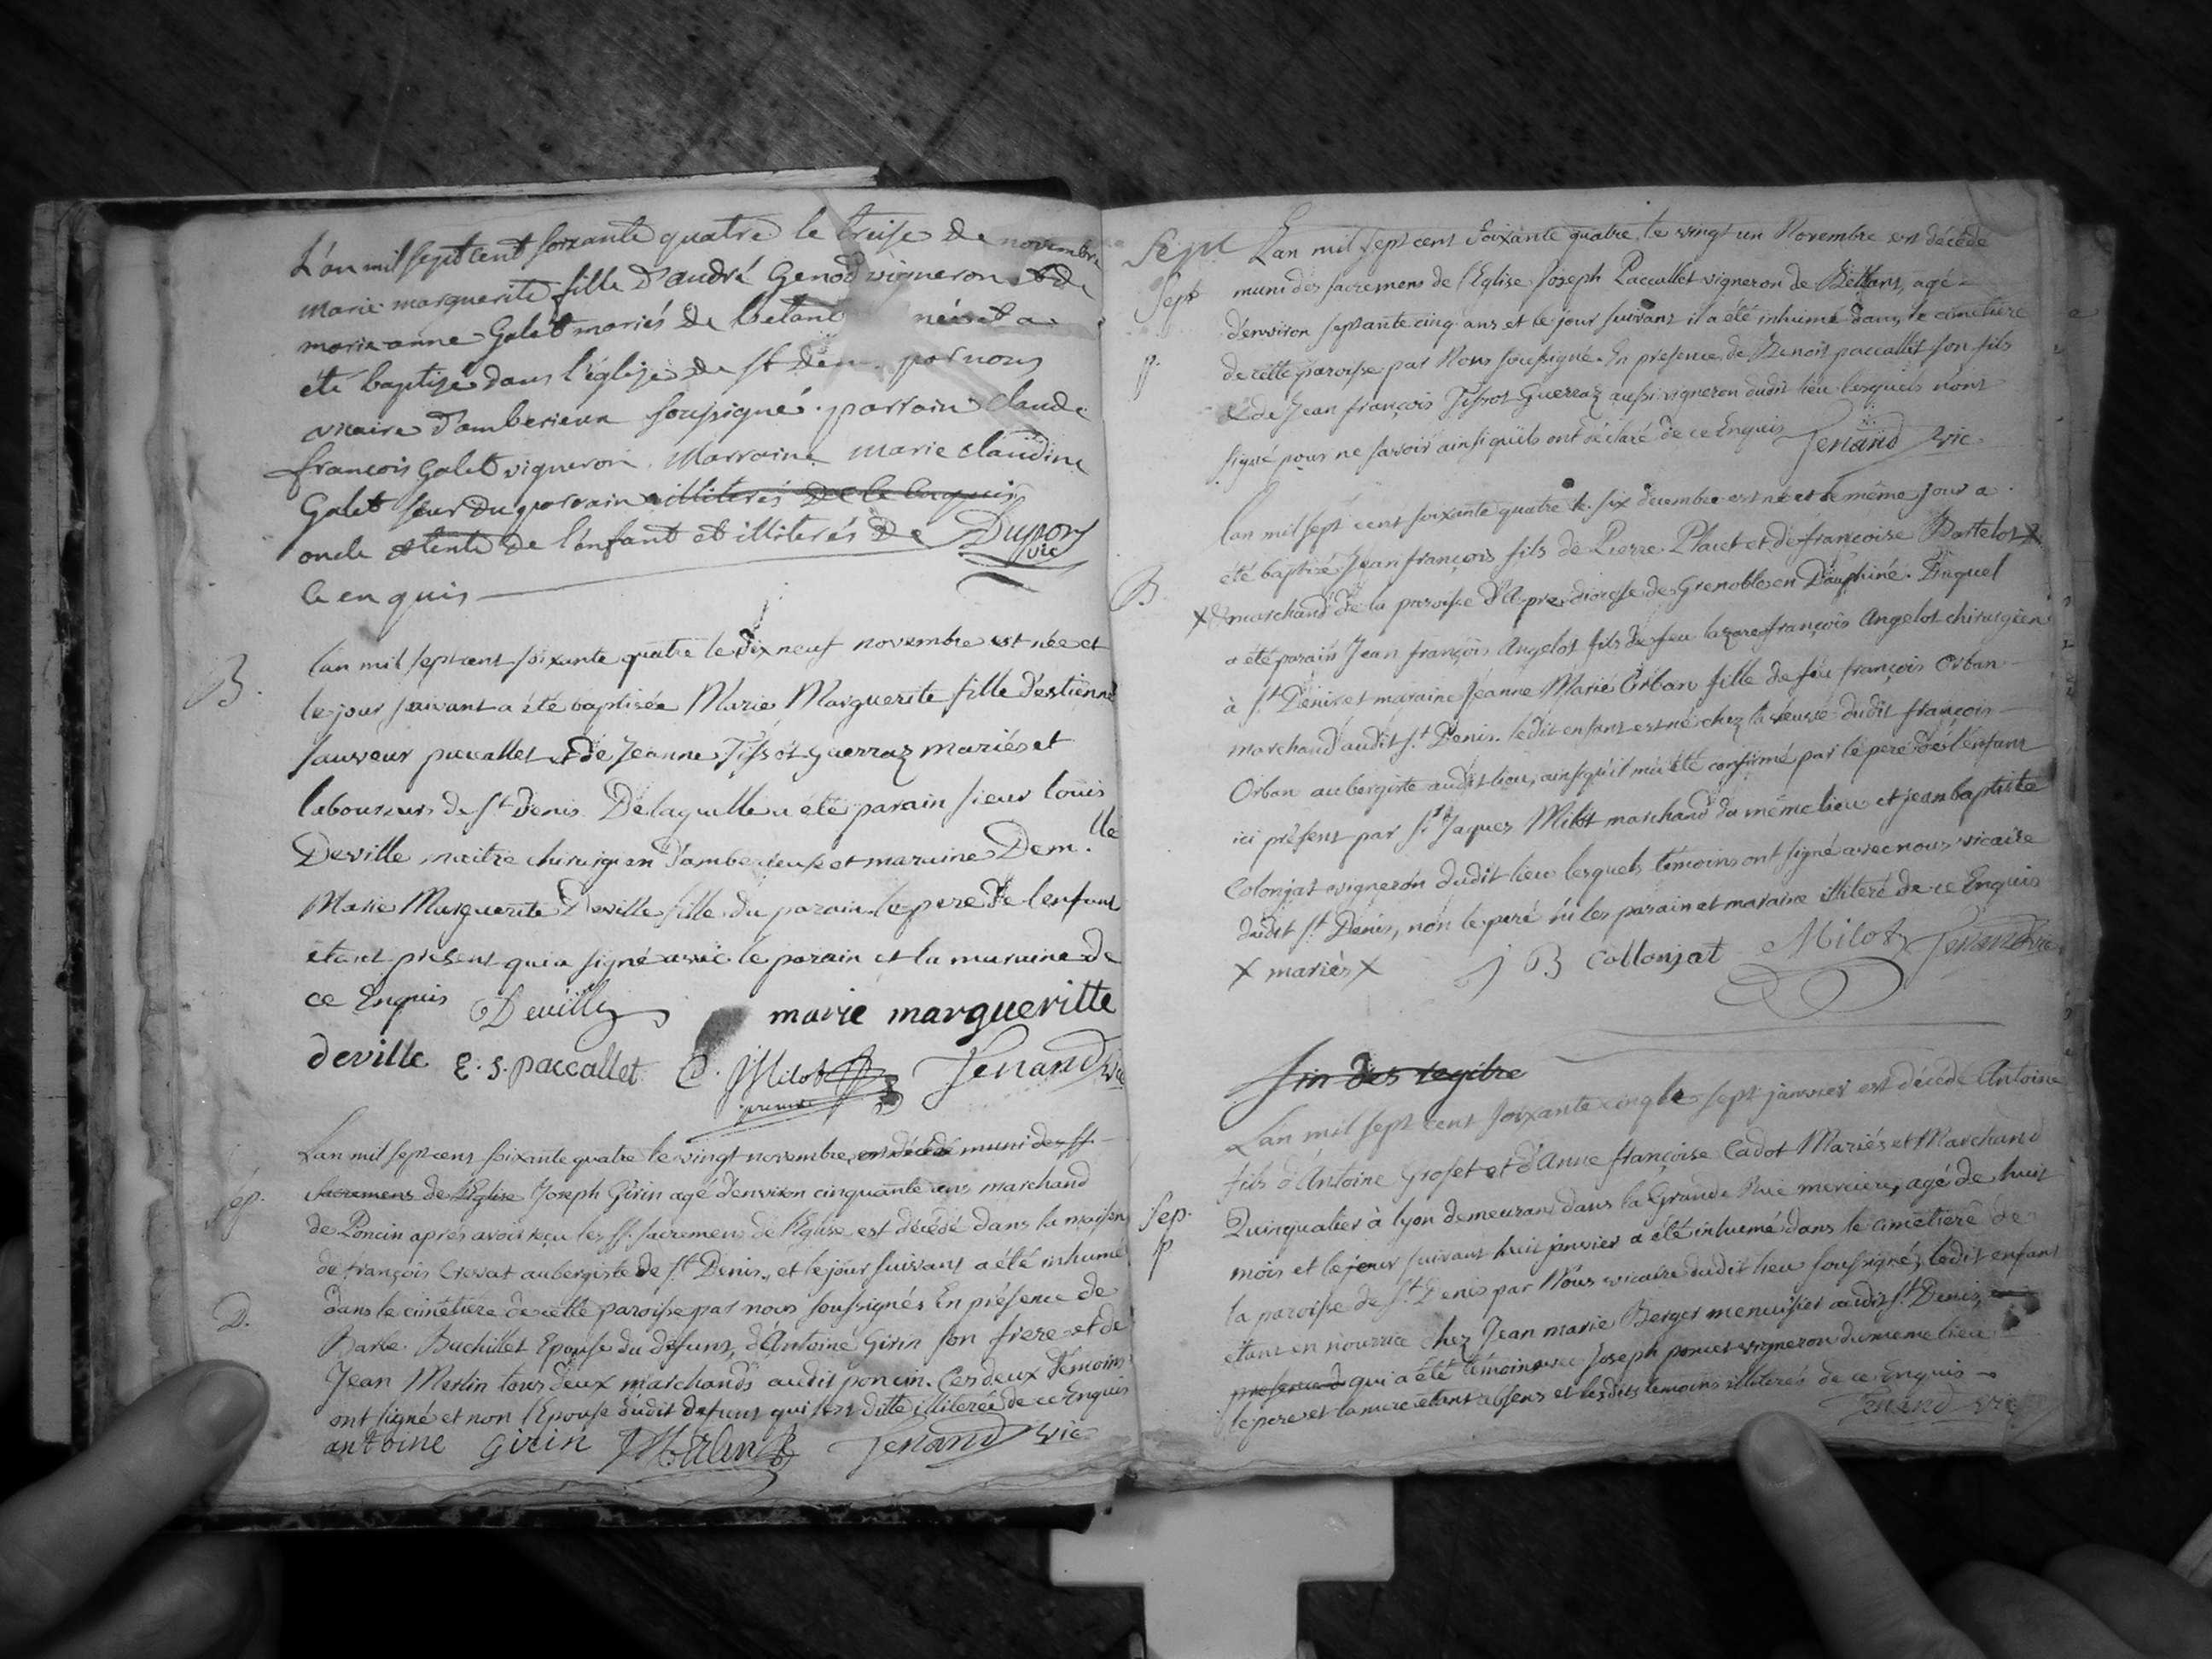 L'an mil sept cent soixante quatre le treise de novembre
marie marguerite fille d'andré Genod vigneron et de
marie anne Galet mariés de betant née et a
été baptisée dans l'église de st denis par nous
vicaire d'amberieux soussigné. parrain claude
francois Galet vigneron. Marraine marie claudine
Galet sœur du parrain illiterés de ce enquis
oncle et tente de l'enfant et illiterés de Dupont
ce enquis vic
B. l'an mil sept cent soixante quatre le dix neuf novembre est née et
le jour suivant a été baptisée Marie Marguerite fille d'estienne
sauveur paccallet et de Jeanne Tissot Guerraz mariés et
laboureurs de St Denis. De laquelle a été parain sieur louis
Deville maitre chirurgien d'amberieux et maraine Dem.lle
Marie Marguerite Deville fille du parain le pere de l'enfant
étant présent qui a signé avec le parain et la maraine de
ce Enquis Deville marie margueritte
deville E. S. paccallet C. Milot Tenand vic
present
sép. L'an mil sept cent soixante quatre le vingt novembre, est décédé muni des SS.
sacremens de l'Eglise Joseph Girin agé d'environ cinquante ans marchand
de Poncin après avoir reçu les SS. sacremens de l'Eglise est décédé dans la maison
de françois Crevat aubergiste de St Denis, et le jour suivant a été inhumé
D. dans le cimetiere de cette paroisse par nous soussignés En présence de
Barbe Bachillet Epouse du défunt, d'Antoine Girin son frere et de
Jean Merlin tous deux marchands audit poncin. Ces deux témoins
ont signé et non l'Epouse dudit defunt qui s'est ditte illiterée de ce Enquis
antoine Girin J Merlin Tenand vic
Sept L'an mil sept cent soixante quatre, le vingt un Novembre est décédé
Sept muni des sacremens de l'Eglise Joseph Paccallet vigneron de Bettans, agé
d'environ septante cinq ans et le jour suivant il a été inhumé dans le cimetiere
p. de cette paroisse par Nous soussigné. En presence de Benoit paccallet son fils
& de Jean françois Tissot Guerraz aussi vigneron dudit lieu lesquels n'ont
signé pour ne savoir ainsi qu'ils ont déclaré de ce Enquis Tenand vic
l'an mil sept cent soixante quatre le six decembre est né et le même jour a
été baptisé Jean françois fils de Pierre Placet et de françoise Bartelot X
B X & marchand de la paroisse d'Apre diocese de Grenoble en Dauphiné. Duquel
a été parain Jean françois Angelot fils de feu lazare françois Angelot chirurgien
à St Denis et maraine Jeanne Marie Orban fille de feu françois Orban
marchand audit St Denis. ledit enfant est né chez la veuve dudit françois
Orban aubergiste audit lieu, ainsi qu'il m'a été confirmé par le pere de l'enfant
ici présent par Sr Jaques Milot marchand du même lieu et jean baptiste
Colonjat vigneron dudit lieu lesquels témoins ont signé avec nous vicaire
dudit St Denis, non le pere ni les parain et maraine illiteré de ce Enquis
X mariés X J B Collonjat Milot Tenand vic
fin des regitre
L'an mil sept cent soixante cinq le sept janvier est décédé Antoine
fils d'Antoine Groset et d'Anne françoise Cadot Mariés et Marchand
Sep. Quinqualier à lyon demeurant dans la Grande Rue merciere, agé de huit
p mois et le jour suivant huit janvier a été inhumé dans le cimetiere de
la paroisse de St Denis par Nous vicaire dudit lieu soussigné, ledit enfant
étant en nourrice chez Jean marie Berger menuisier audit St Denis,
presence d qui a été témoin avec Joseph poncet vigneron du meme lieu
le pere et la mere etant absens et lesdits temoins illiterés de ce Enquis
Tenand vic